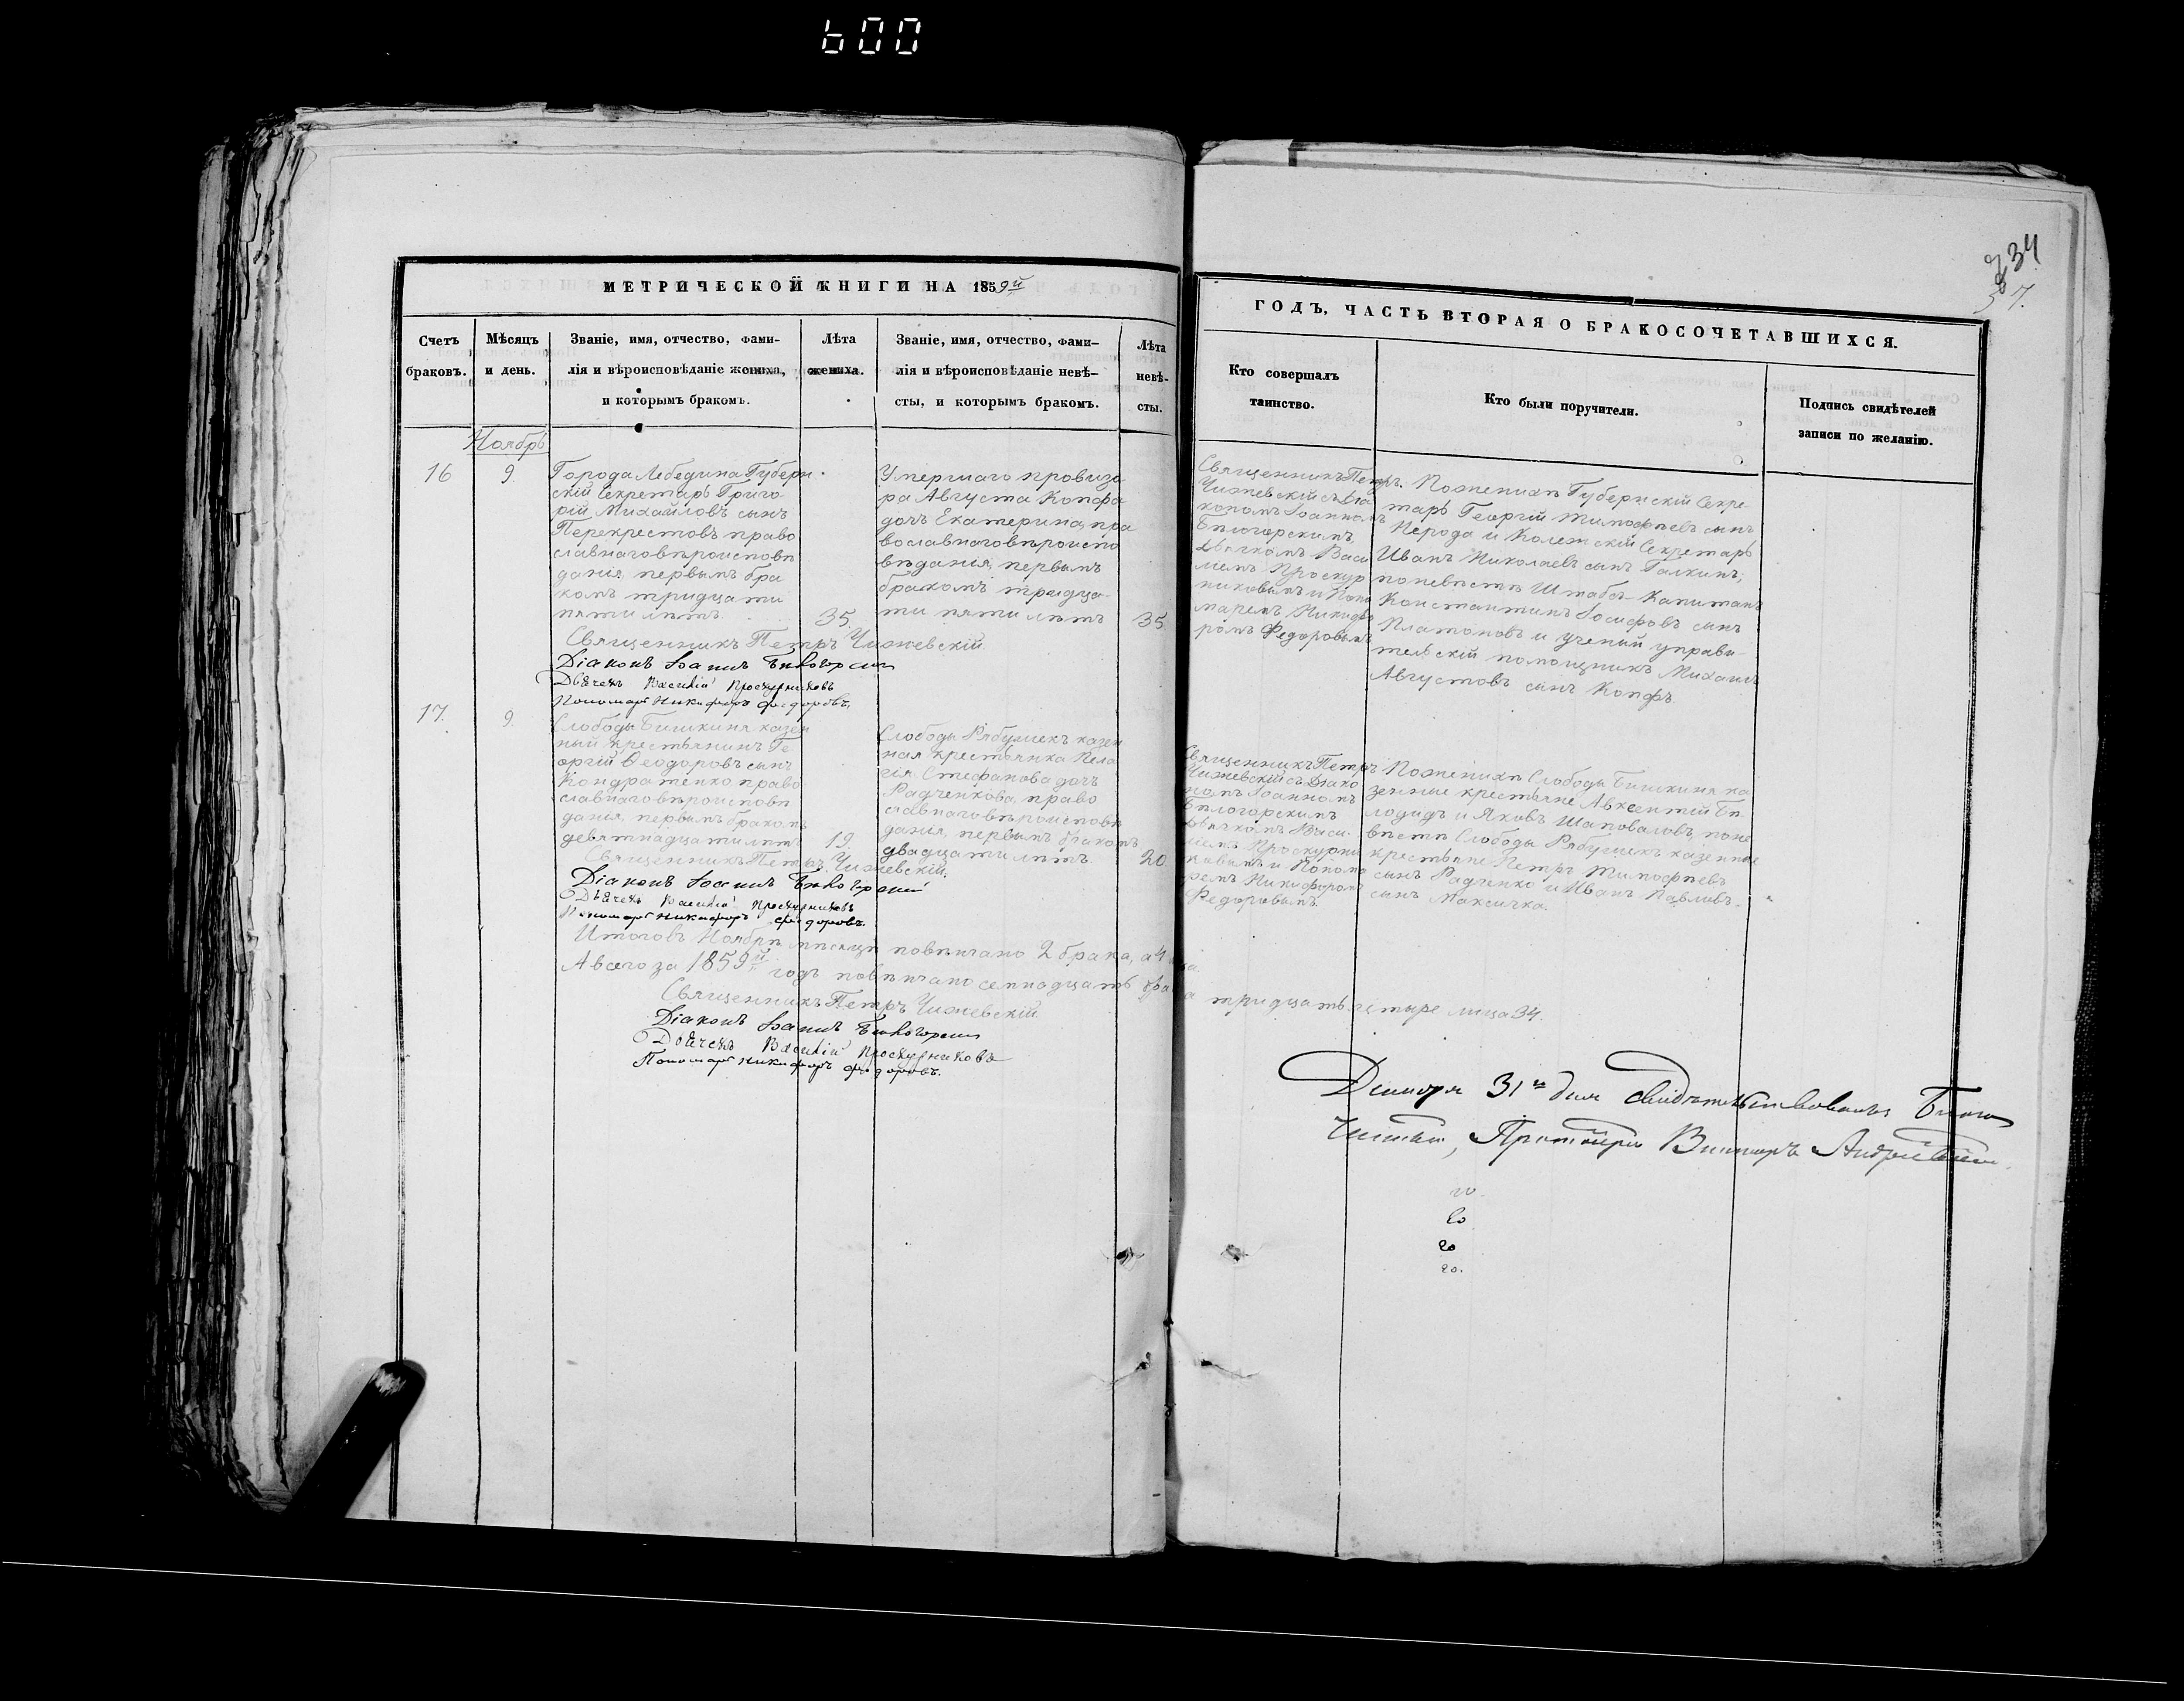 600
334
37.
МЕТРИЧЕСКОЙ КНИГИ НА 1859й
ГОДЪ, ЧАСТЬ ВТОРАЯ О БРАКОСОЧЕТАВШИХСЯ.
Счетъ
браковъ.
Мѣсяцъ
и день.
Званіе, имя, отчество, фами-
лія и вѣроисповѣданіе жениха,
и которымъ бракомъ.
Лѣта
жениха.
Званіе, имя, отчество, фами-
лія и вѣроисповѣданіе невѣ-
сты, и которымъ бракомъ.
Лѣта
невѣ-
сты.
Кто совершалъ
таинство.
Кто были поручители.
Подпись свидѣтелей
записи по желанію.
Ноябрь
16
9.
Города Лебедина Губерн
скій Секретарь Григо
рій Михайловъ сынъ
Перекрестовъ право
славнаго вѣроисповѣ
данія, первымъ бра
комъ тридцати
пяти лѣтъ.
35.
Умершаго провизо
ра Августа Копфа
дочь Екатерина, пра
вославнаго вѣроиспо
вѣданія, первымъ
бракомъ тридца-
ти пяти лѣтъ
35.
Священникъ Петръ
Чижевскій съ Діа
кономъ Іоанномъ
Бѣлогорскимъ,
Дьячкомъ Васи
ліемъ Проскур
никовымъ и Поно
маремъ Никифо
ромъ Федоровымъ
По женихѣ Губернскій Секре-
тарь Георгій Тимофѣевъ сынъ
Перода и Колежскій Секретарь
Иванъ Николаевъ сынъ Галкинъ,
по невѣстѣ Штабсъ-Капитанъ
Константинъ Іосифовъ сынъ
Платоновъ и ученый управи-
тельскій помощникъ Михаилъ
Августовъ сынъ Копфъ.
Священникъ Петръ Чижевскій
Діаконъ Іоаннъ Бѣлогорскій
Дьячекъ Василій Проскурниковъ
Пономарь Никифоръ Федоровъ.
17.
9.
Слободы Бишкиня казен
ный крестьянинъ Ге
оргій Ѳеодоровъ сынъ
Кондратенко право
славнаго вѣроисповѣ
данія, первымъ бракомъ
девятнадцати лѣтъ
19.
Слободы Рябушекъ казен
ная крестьянка Пела
гія Стефанова дочь
Радченкова, право
славнаго вѣроисповѣ
данія, первымъ бракомъ
двадцати лѣтъ.
20
Священникъ Петръ
Чижевскій съ Діако
номъ Іоанномъ
Бѣлогорскимъ
Дьячкомъ Васи-
ліемъ Проскурни
ковымъ и Понома
ремъ Никифоромъ
Федоровымъ.
По женихѣ Слободы Бишкиня ка
зенные крестьяне Авксентей Бѣ
лодидъ и Яковъ Шаповаловъ, по не
вѣстѣ Слободы Рябушекъ казенные
крестьяне Петръ Тимофѣевъ
сынъ Радченко и Иванъ Павловъ
сынъ Максичка.
Священникъ Петръ Чижевскій.
Діаконъ Іоаннъ Бѣлогорскій
Дьячекъ Василій Проскурниковъ
Пономарь Никифоръ Федоровъ.
Итого въ Ноябрѣ мѣсяцѣ повѣнчано 2 брака, а 4 лица.
А всего за 1859й годъ повѣнчано семнадцать брака тридцать четыре лица 34.
Священникъ Петръ Чижевскій
Діаконъ Іоаннъ Бѣлогорскій
Дьячекъ Василій Проскурниковъ
Пономарь Никифоръ Федоровъ.
Декабря 31го дня свидѣтельствовалъ Благо
чинный, Протоіерей Викторъ
20
20
20.